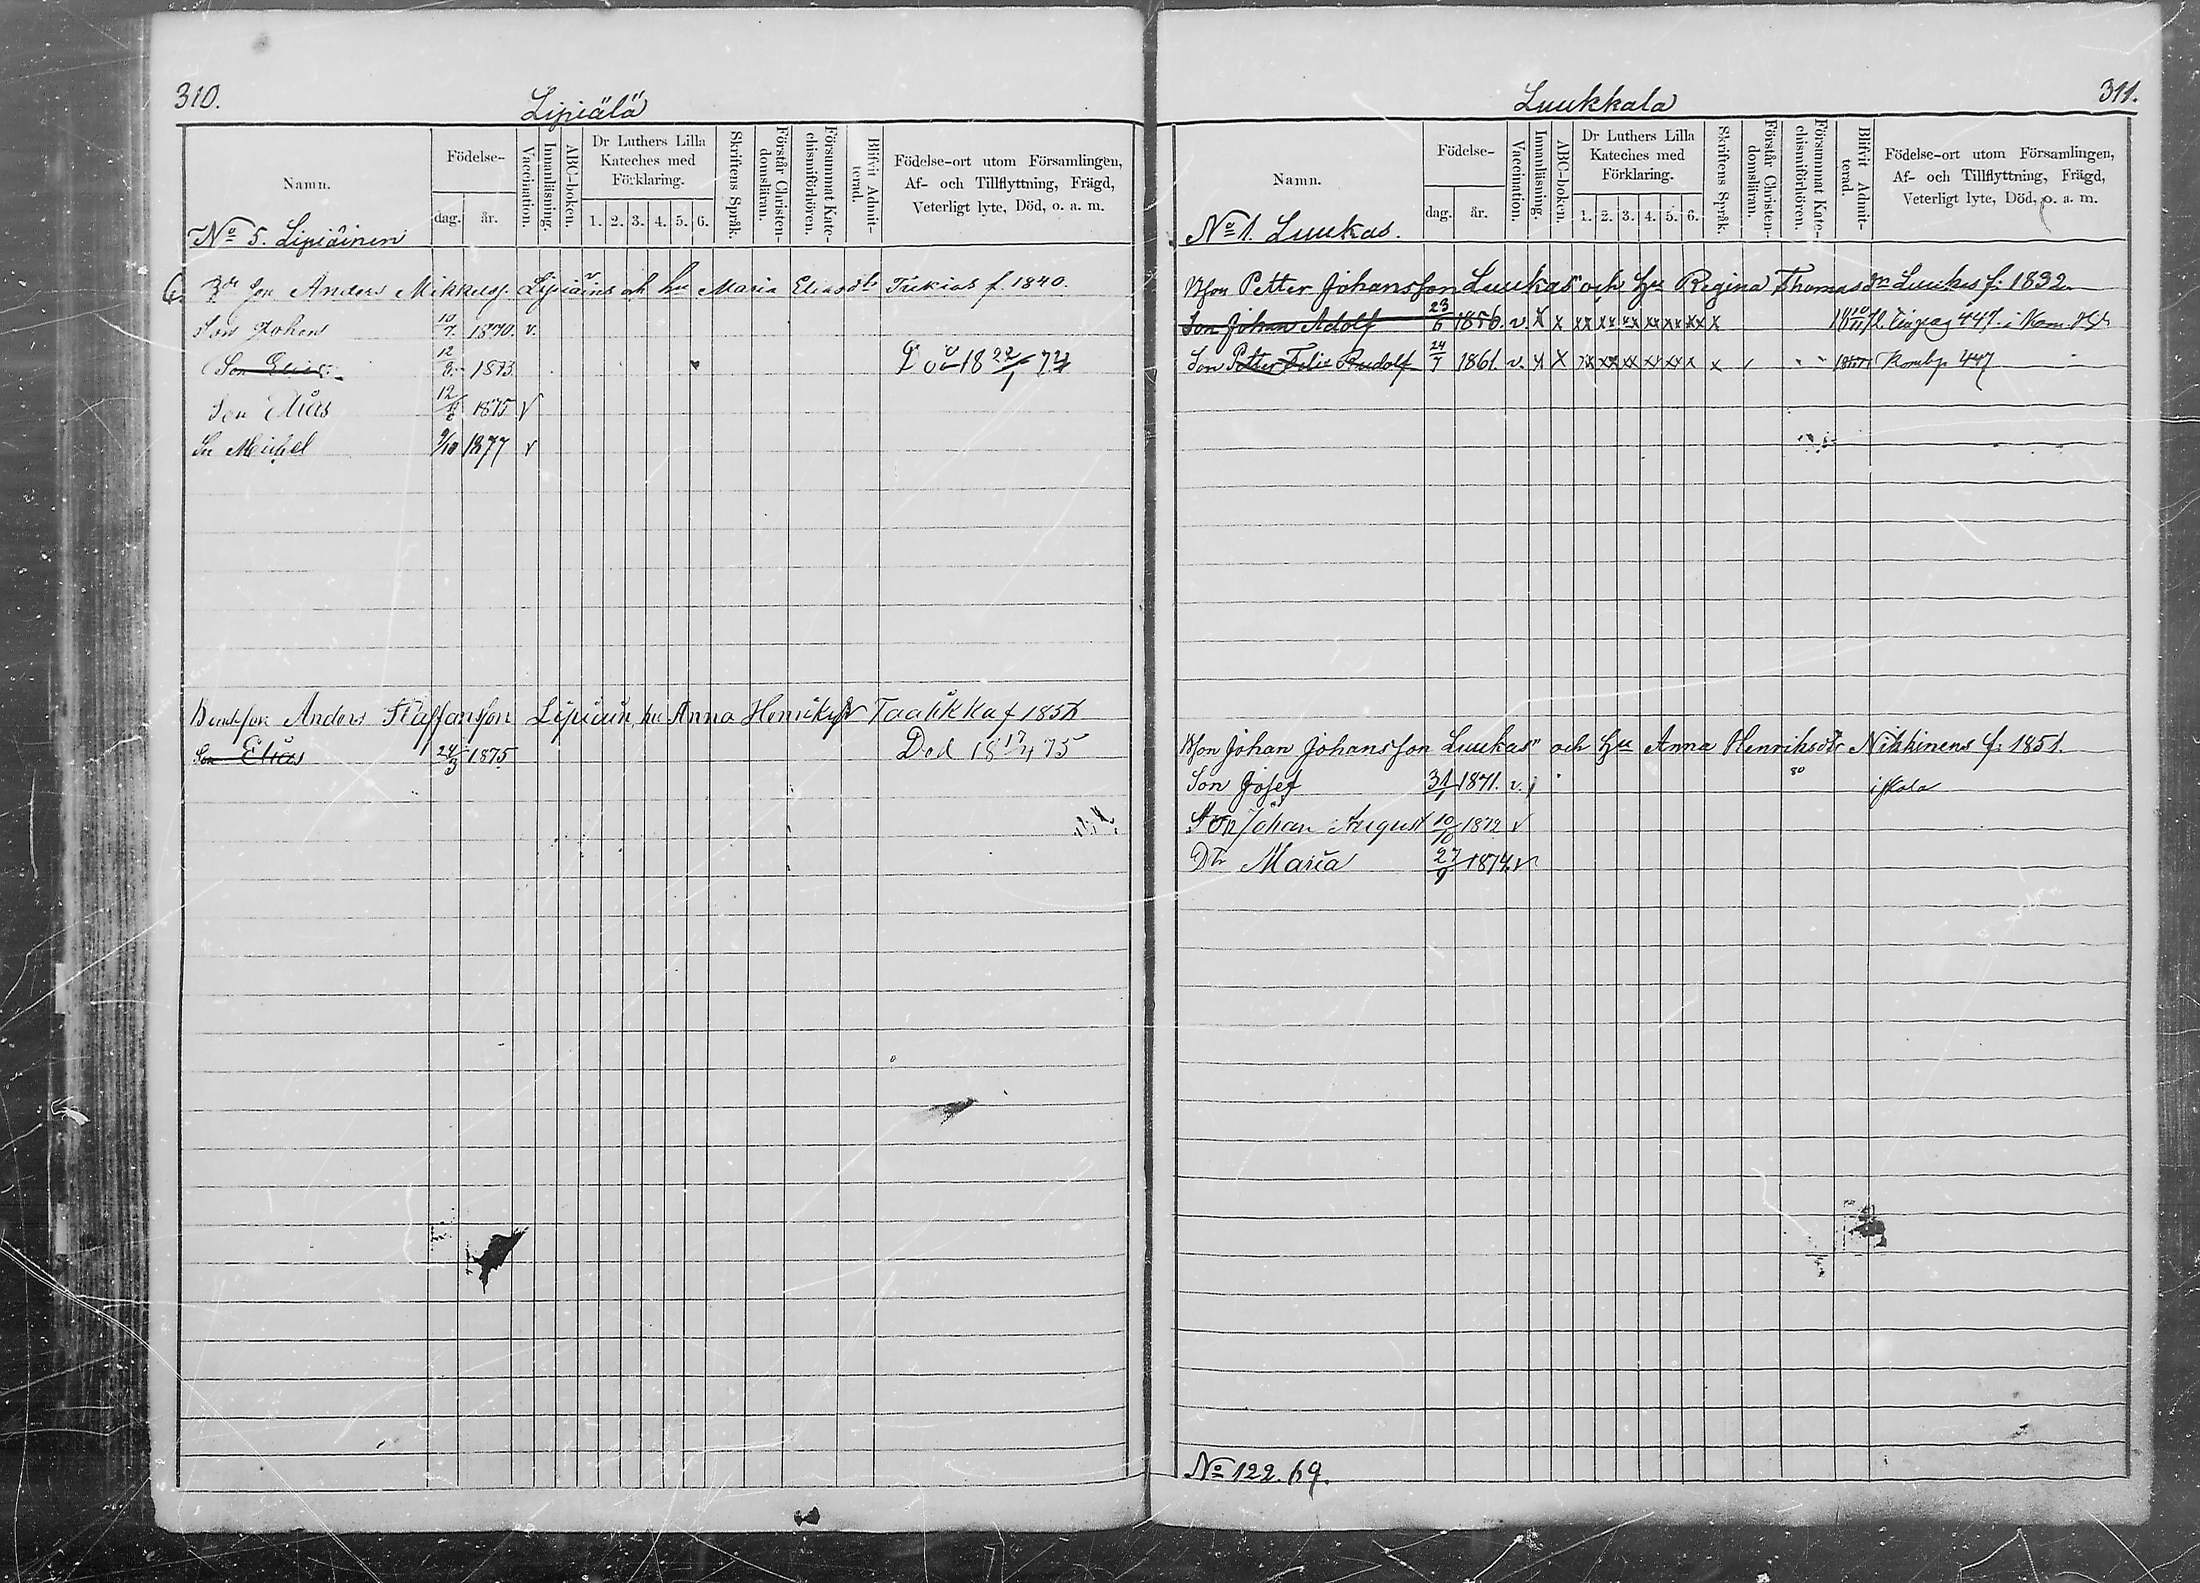 310.
Lipiälä
Namn.
Födelse-
dag.
år.
Vaccination.
Innanläsning.
ABC-boken.
Dr Luthers Lilla
Kateches med
Förklaring.
1. 2. 3. 4. 5. 6.
Skriftens Språk.
Förstår Christen-
domsläran.
Försummat Kate-
chismiförhören.
Blifvit Admit-
terad.
Födelse-ort utom Församlingen,
Af- och Tillflyttning, Frägd,
Veterligt lyte, Död, o. a. m.
No 5. Lipiäinen
Anders Mikkelsp. Lipiäins och hu Maria Eliasdtr Tukias f. 1840.
Son Johan 10/7. 1870. v.
Son Elias 12/8. 1873 Död 18 22/1 74
Son Elias 12/8 1875 v
Sn Michel 9/10 1877 v
Bondeson Anders Staffansson Lipiäin, hu Anna Henriksdr Taalikka f 1852
Son Elias 24/3 1875 Död 18 17/4 75
311.
Luukkala
Namn.
Födelse-
dag.
år.
Vaccination.
Innanläsning.
ABC-boken.
Dr Luthers Lilla
Kateches med
Förklaring.
1. 2. 3. 4. 5. 6.
Skriftens Språk.
Förstår Christen-
domsläran.
Försummat Kate-
chismiförhören.
Blifvit Admit-
terad.
Födelse-ort utom Församlingen,
Af- och Tillflyttning, Frägd,
Veterligt lyte, Död, o. a. m.
No 1. Luukas.
Bson Petter Johansson Luukas" och Hu Regina Thomasdr Luukas f: 1832.
Son Johan Adolf 23/6 1856. v. x x xx xx xx xx xx xx x 447. i Kom.
Son Petter Felix Rudolf 24/7 1861. v. x x xx xx xx xx xx x x 447
Bson Johan Johansson Luukas" och Hu Anna Henriksdtr Nikkinens f: 1851.
Son Josef 31/1 1871. v. 80 i skola
Son Johan August 10/10 1872 v
Dtr Maria 27/9 1874. v
No 122. 69.